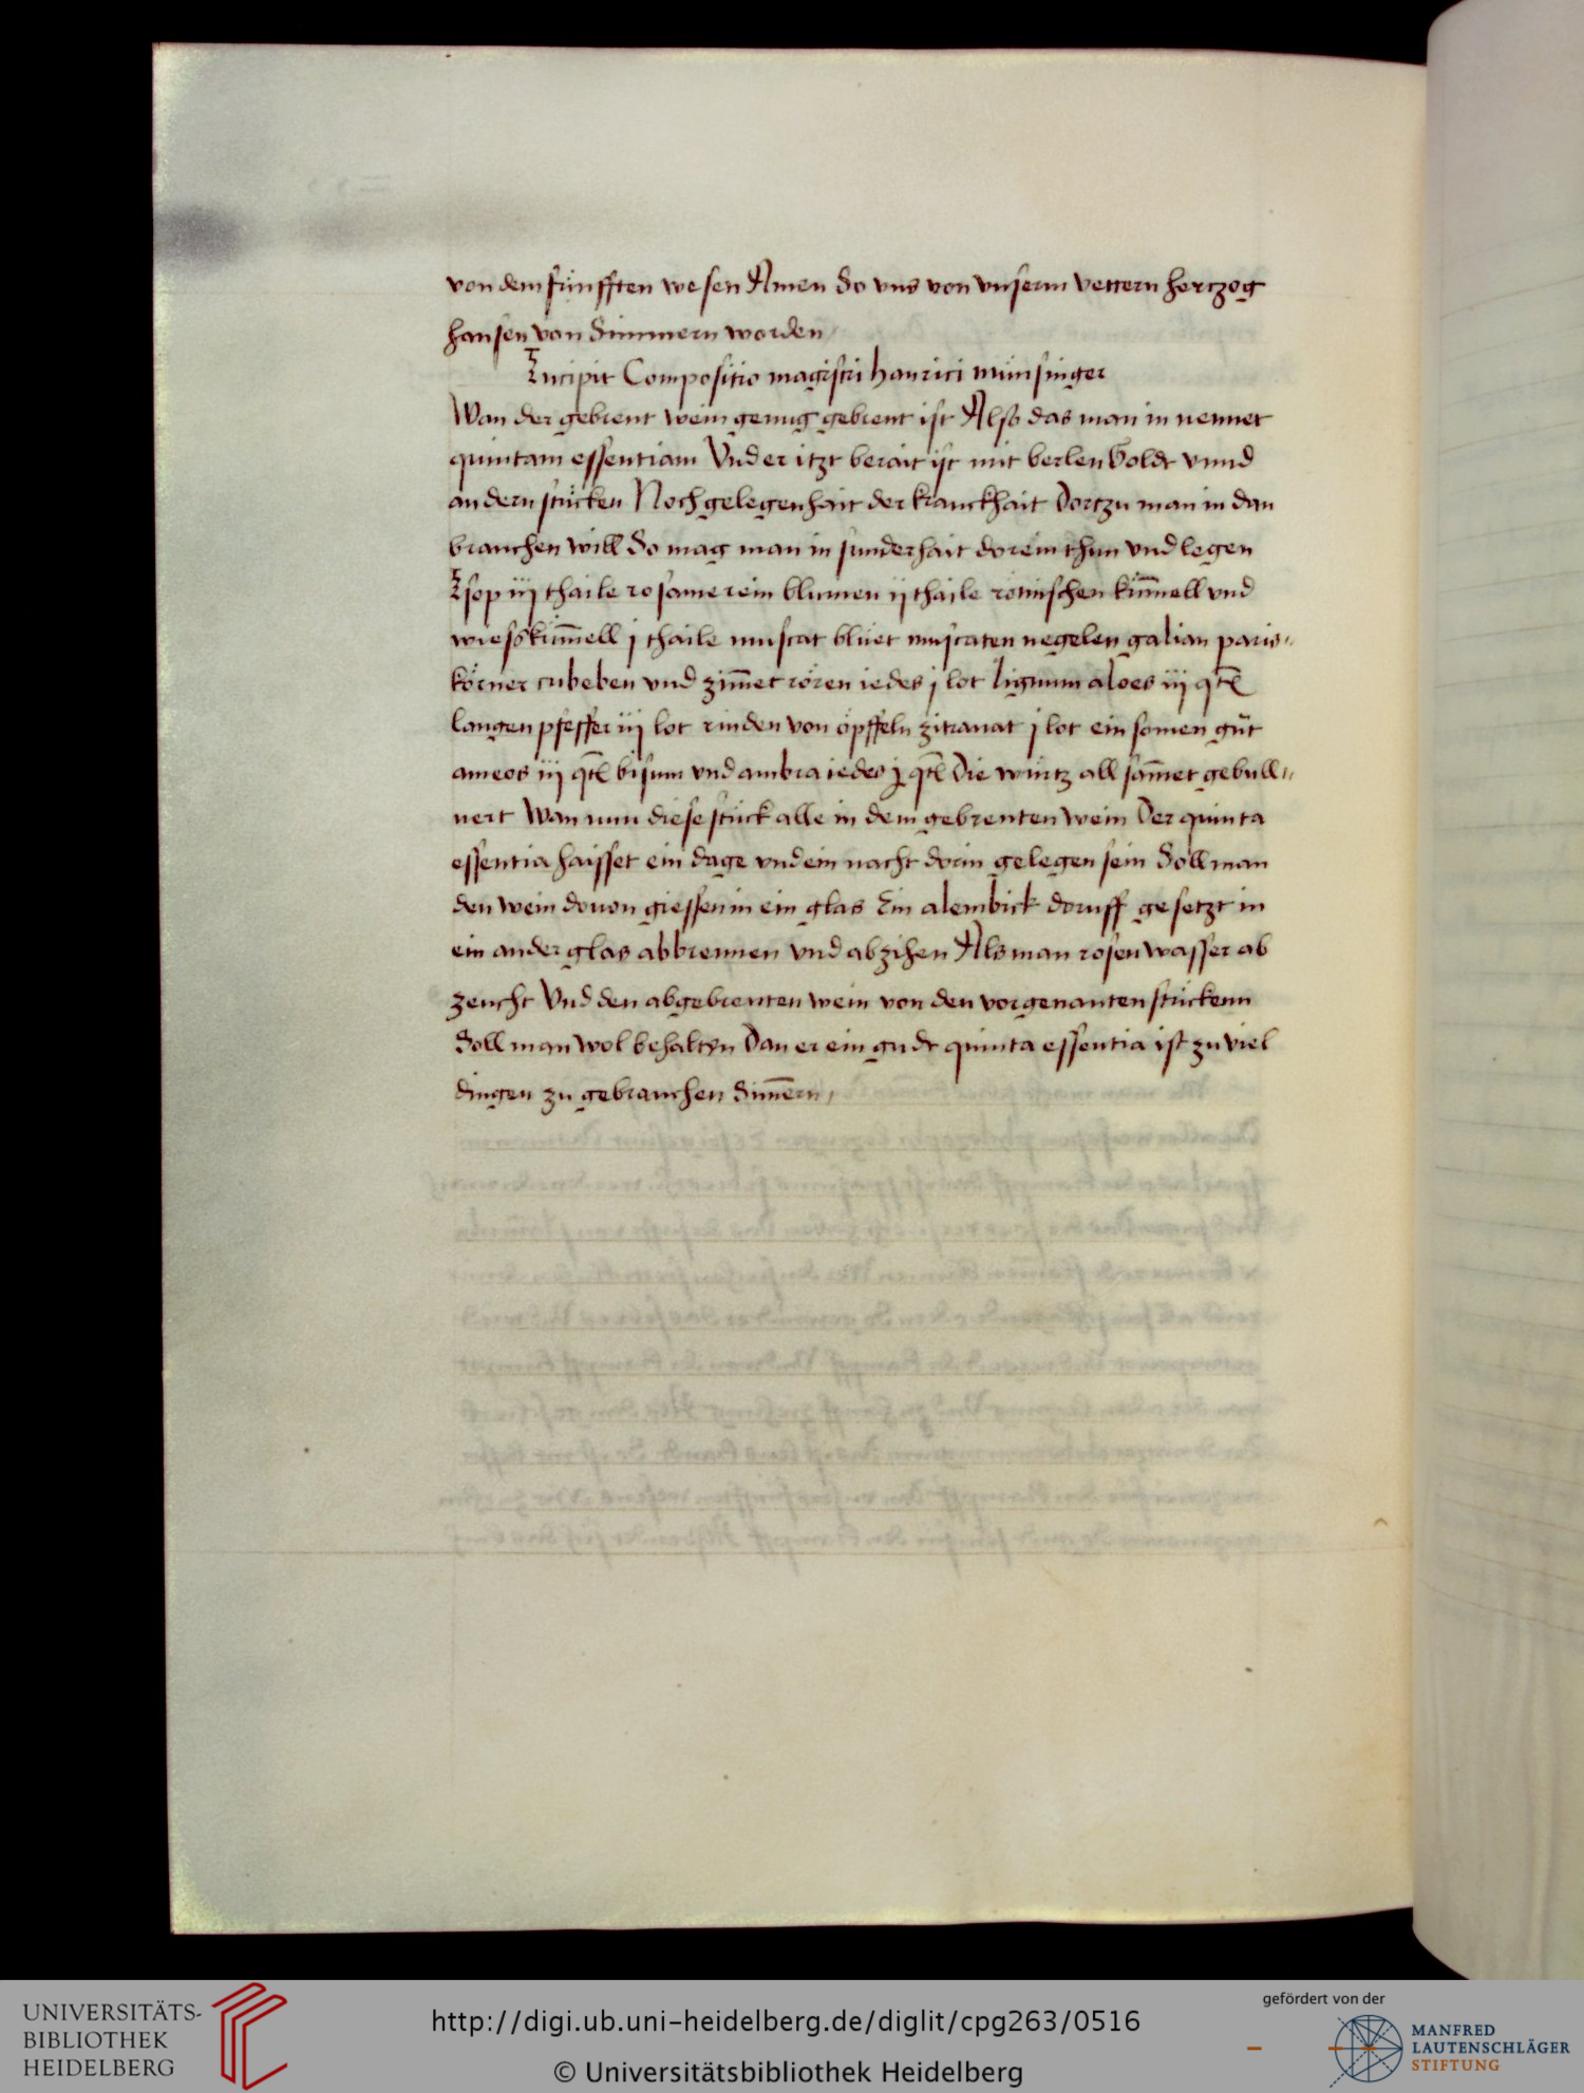 von dem fünfften wesen Amen So vns von vnserm vettern hertzog
hansen von Simmern worden
Incipit Compositio magistri hanrici münsinger
Wan der gebrent wein genug gebrent ist Also das man in nennet
quintam essentiam Vnd er itzt berait ist mit berlen Goldt vnnd
andern stücken Noch gelegenhait der kranckhait Dortzu man in dan
brauchen will So mag man in sunderhait dorein thun vnd legen
Isop iij thaile rosamerein blumen ij thaile römischen kim̄ell vnd
wiesskim̄ell j thaile muscat blüet muscaten negelen galian paris„
körner cubeben vnd zim̄et rören iedes j lot lignum aloes iij qtl
langen pfeffer iij lot rinden von öpffeln zitranat j lot ein somen güt
ameos iij qtl bisum vnd ambra iedes j qtl Die würtz all sam̄et gebull„
uert Wan nun diese stück alle in dem gebrenten wein Der quinta
essentia haisset ein dage vnd ein nacht dorin gelegen sein Soll man
den wein douon giessen in ein glas Ein alembick doruff gesetzt in
ein ander glas abbrennen vnd abzihen Als man rosen wasser ab
zeucht Vnd den abgebrenten wein von den vorgenanten stückenn
Soll man wol behalten Dan er ein gudt quinta essentia ist zu viel
dingen zu gebrauchen Sim̄ern,
UNIVERSITÄTS-
BIBLIOTHEK
HEIDELBERG
http://digi.ub.uni-heidelberg.de/diglit/cpg263/0516
© Universitätsbibliothek Heidelberg
gefördert von der
MANFRED
LAUTENSCHLÄGER
STIFTUNG